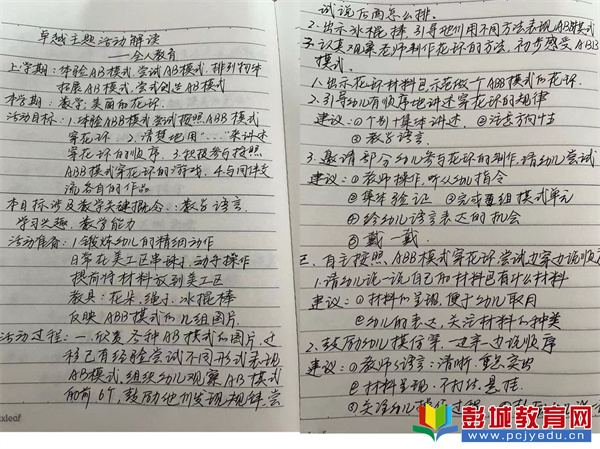 卓越主题活动解读
——全人教育
上学期:体验AB模式.尝试AB模式.排列物体
拓展AB模式.尝试创造AB模式
本学期:数学:美丽的花环.
活动目标:1.体验ABB模式尝试按照ABB模式
穿花环 2.清楚地用“……”来讲述
穿花环的顺序.3.积极参与按照
ABB模式穿花环的游戏.4.与同伴交
流各自的作品
本目标涉及数学关键概念:数学语言.
学习兴趣.数学能力
活动准备:1.锻炼幼儿的精细动作
日常在美工区串珠子,动手操作
提前将材料放到美工区
教具:花朵、绳子、冰棍棒
反映ABB模式的几组图片.
活动过程:一.欣赏各种AB模式的图片,迁
移已有经验尝试不同形式表现
AB模式,组织幼儿观察AB模式
的前6个,鼓励他们发现规律,尝
试说后面怎么排.
2.出示冰棍棒,引导他们用不同方法表现ABB模式
二.认真观察老师制作花环的方法,初步感受ABB
模式.
1.出示花环材料包示范做一个ABB模式的花环.
2.引导幼儿有顺序地讲述穿花环的规律
建议:①个别集体讲述.②注意方向性
③数学语言.
3.邀请部分幼儿参与花环的制作,请幼儿尝试
建议:①教师操作,听从幼儿指令
②集体验证 ③完成重组模式单元
④给幼儿语言表达的机会
⑤戴一戴.
三、自主按照ABB模式穿花环尝试边穿边说顺序
1.请幼儿说一说自己的材料包有什么材料
建议:①材料的呈现,便于幼儿取用
②幼儿的表达,关注材料的种类
2.鼓励幼儿模仿穿一边穿一边说顺序
建议:①教师的语言:清晰.重点突出
②材料呈现:不打结.悬挂.
leaf
彭城教育网
www.pcjyedu.cn